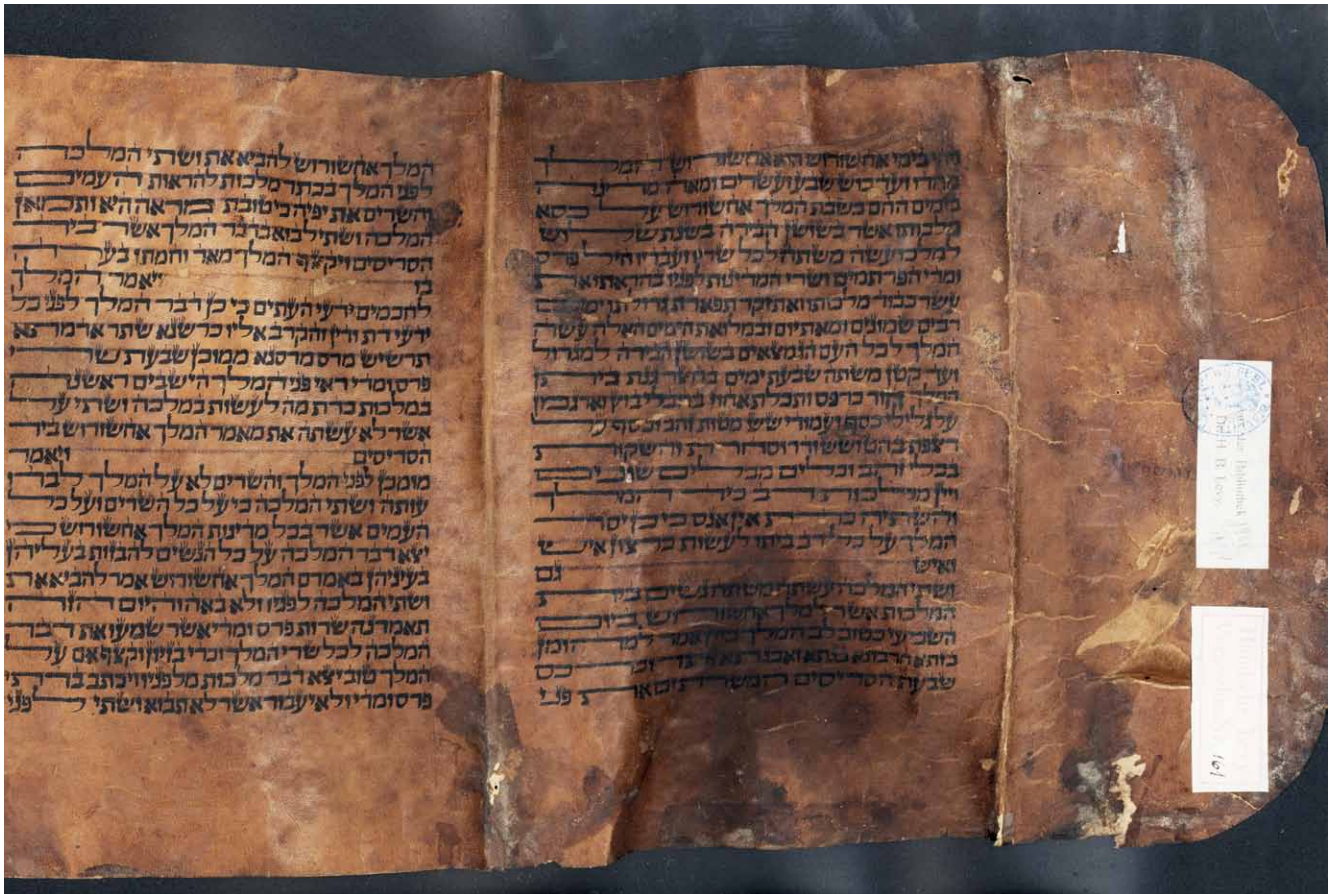 ויהי בימי אחשורוש הוא אחשורוש המלך
מהדו ועד כוש שבע ועשרים ומאה מדינה
בימים ההם כשבת המלך אחשורוש על כסא
מלכותו אשר בשושן הבירה בשנת שלוש
למלכו עשה משתה לכל שריו ועבדיו חיל פרס
ומדי הפרתמים ושרי המדינות לפניו בהראתו את
עשר כבוד מלכותו ואת יקר תפארת גדולתו ימים
רבים שמונים ומאת יום ובמלואת הימים האלה עשה
המלך לכל העם הנמצאים בשושן הבירה למגדול
ועד קטן משתה שבעת ימים בחצר גנת ביתן
המלך חור כרפס ותכלת אחוז בחבלי בוץ וארגמן
על גלילי כסף ועמודי שש מטות זהב וכסף על
רצפת בהט ושש ודר וסחרת והשקות
בכלי זהב וכלים מכלים שונים
ויין מלכות רב כיד המלך
והשתיה כדת אין אנס כי כן יסד
המלך על כל רב ביתו לעשות כרצון איש
ואיש גם
ושתי המלכה עשתה משתה נשים בית
המלכות אשר למלך אחשורוש ביום
השביעי כטוב לב המלך ביין אמר למהומן
בזתא חרבונא בגתא ואבגתא זתר וכרכס
שבעת הסריסים המשרתים את פני
המלך אחשורוש להביא את ושתי המלכה
לפני המלך בכתר מלכות להראות העמים
והשרים את יפיה כי טובת מראה היא ותמאן
המלכה ושתי לבוא בדבר המלך אשר ביד
הסריסים ויקצף המלך מאד וחמתו בערה
בו ויאמר המלך
לחכמים ידעי העתים כי כן דבר המלך לפני כל
ידעי דת ודין והקרב אליו כרשנא שתר אדמתא
תרשיש מרס מרסנא ממוכן שבעת שרי
פרס ומדי ראי פני המלך הישבים ראשנה
במלכות כדת מה לעשות במלכה ושתי על
אשר לא עשתה את מאמר המלך אחשורוש ביד
הסריסים ויאמר
מומכן לפני המלך והשרים לא על המלך לבדו
עותה ושתי המלכה כי על כל השרים ועל כל
העמים אשר בכל מדינות המלך אחשורוש כי
יצא דבר המלכה על כל הנשים להבזות בעליהן
בעיניהן באמרם המלך אחשורוש אמר להביא את
ושתי המלכה לפניו ולא באה והיום הזה
תאמרנה שרות פרס ומדי אשר שמעו את דבר
המלכה לכל שרי המלך וכדי בזיון וקצף אם על
המלך טוב יצא דבר מלכות מלפניו ויכתב בדתי
פרס ומדי ולא יעבור אשר לא תבוא ושתי לפני
Bibliothek
Dr. H. B. Levy
161